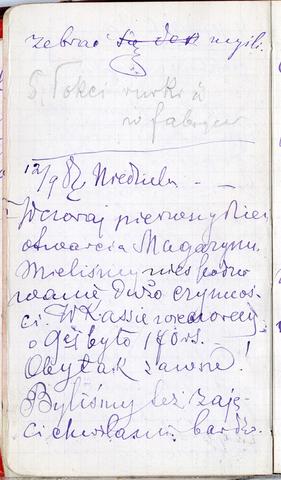 zebrać ~~się do~~ myśli.
5 łokci rurki
w fabryce
12/9 Niedziela. —
Wczoraj pierwszy dzień
otwarcia Magazynu.
Mieliśmy niespodzie
wanie dużo czynnoś-
ci. W Kassie wieczorem
o 9ej było 140 rs.
Oby tak zawsze!
Byliśmy też zaję-
ci chwilami bardzo.